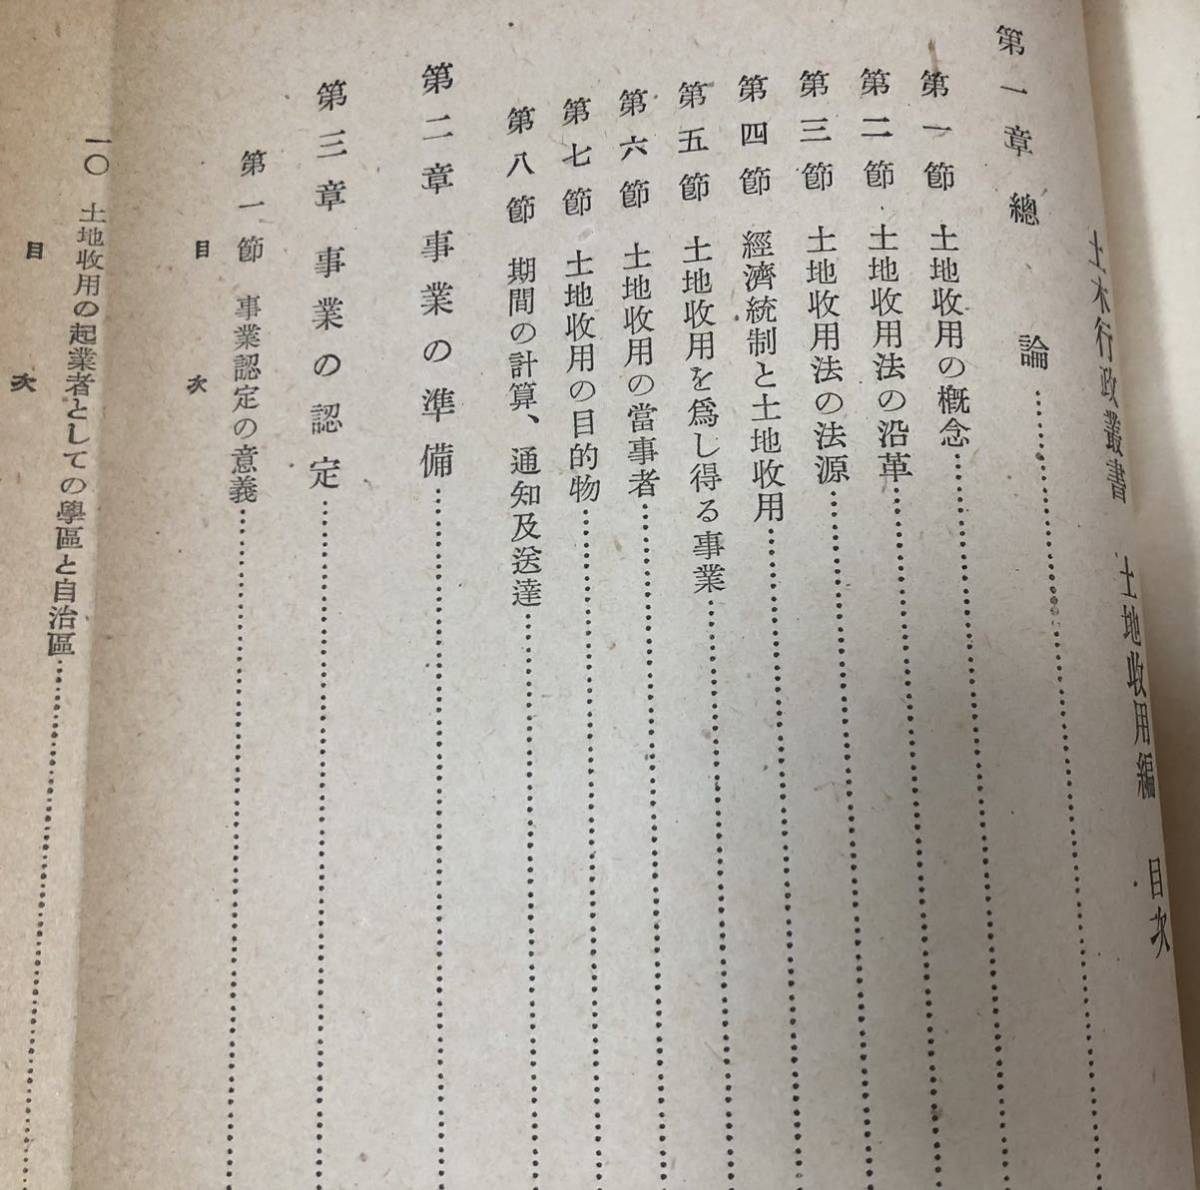 土木行政叢書　土地收用編　目次
第一章　總　論
第一節　土地收用の概念
第二節　土地收用法の沿革
第三節　土地收用法の法源
第四節　經濟統制と土地收用
第五節　土地收用を爲し得る事業
第六節　土地收用の當事者
第七節　土地收用の目的物
第八節　期間の計算、通知及送達
第二章　事業の準備
第三章　事業の認定
第一節　事業認定の意義
目　次
一〇　土地收用の起業者としての學區と自治區
目　次